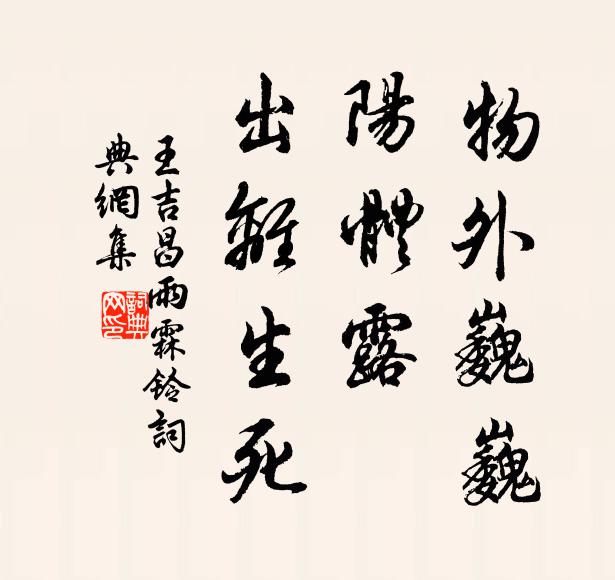 物外巍巍
陽體露
出離生死
王吉昌雨霖鈴詞
典網集
詞典
网印